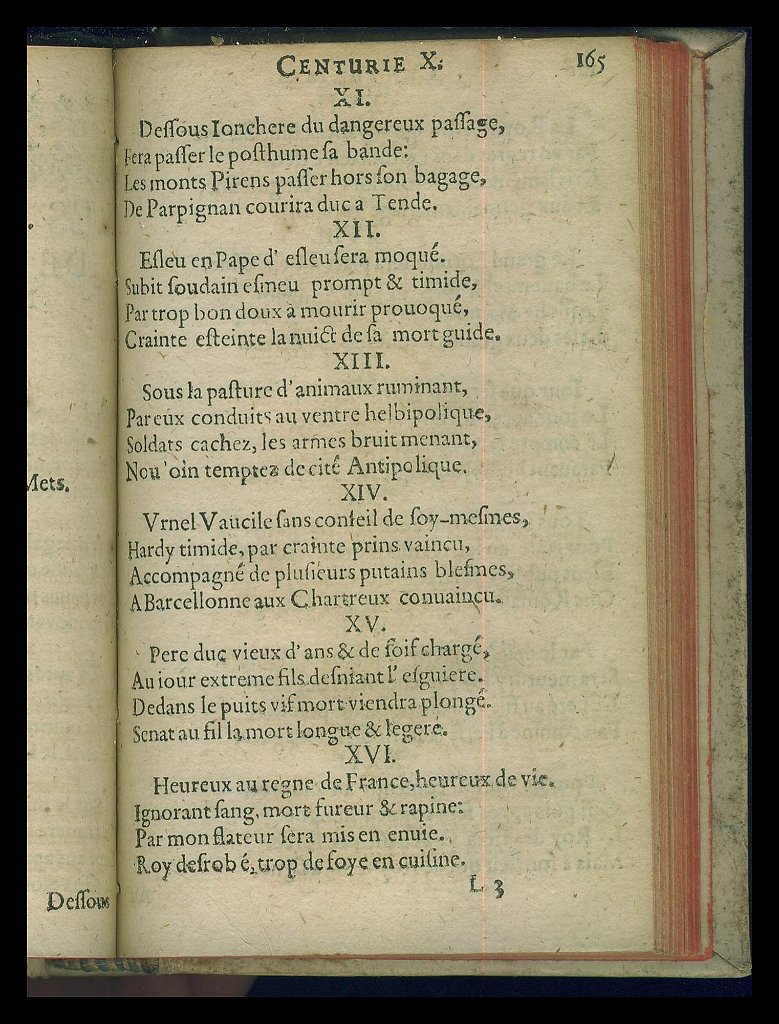 Mets.
Dessous
CENTURIE X. 165
XI.
Deſſous Ionchere du dangereux paſſage,
Fera paſſer le poſthume ſa bande:
Les monts Pirens paſſer hors ſon bagage,
De Parpignan courira duc a Tende.
XII.
Eſleu en Pape d' eſleu ſera moqué.
Subit ſoudain eſmeu prompt & timide,
Par trop bon doux à mourir prouoqué,
Crainte eſteinte la nuict de ſa mort guide.
XIII.
Sous la paſture d'animaux ruminant,
Par eux conduits au ventre helbipolique,
Soldats cachez, les armes bruit menant,
Nou'oin temptez de cité Antipolique.
XIV.
Vrnel Vaucile ſans conſeil de ſoy-meſmes,
Hardy timide, par crainte prins vaincu,
Accompagné de pluſieurs putains bleſmes,
A Barcellonne aux Chartreux conuaincu.
XV.
Pere duc vieux d'ans & de ſoif chargé,
Au iour extreme fils deſniant l' eſguiere.
Dedans le puits vif mort viendra plongé.
Senat au fil la mort longue & legere.
XVI.
Heureux au regne de France, heureux de vie.
Ignorant ſang, mort fureur & rapine:
Par mon flateur ſera mis en enuie.
Roy deſrobé, trop de foye en cuiſine.
L 3